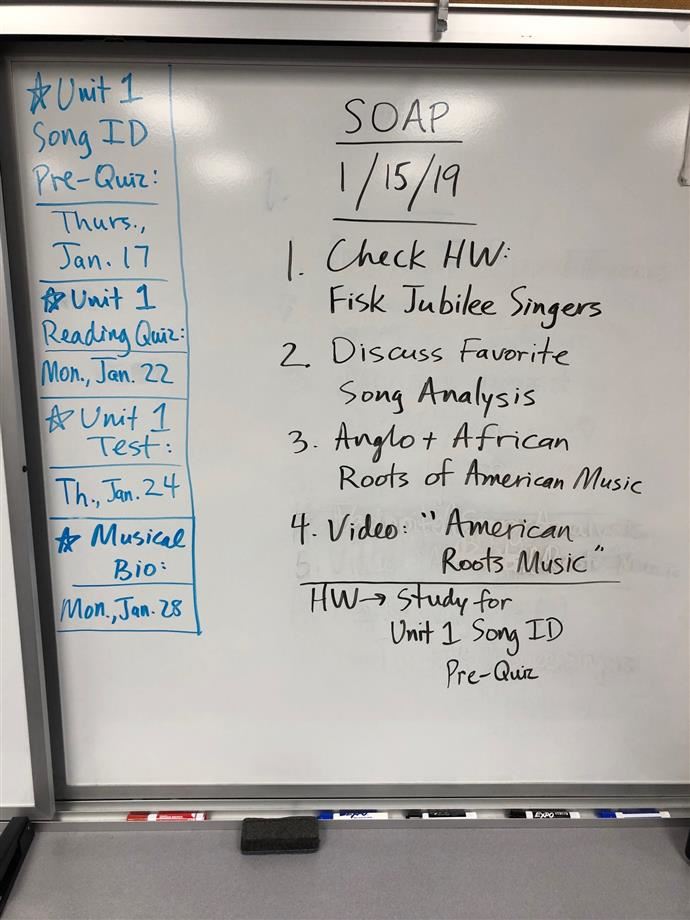 ☆ Unit 1
Song ID
Pre-Quiz:
Thurs.,
Jan. 17
☆ Unit 1
Reading Quiz:
Mon., Jan. 22
☆ Unit 1
Test:
Th., Jan. 24
☆ Musical
Bio:
Mon., Jan. 28
SOAP
1/15/19
1. Check HW:
Fisk Jubilee Singers
2. Discuss Favorite
Song Analysis
3. Anglo + African
Roots of American Music
4. Video: "American
Roots Music"
HW → Study for
Unit 1 Song ID
Pre-Quiz
EXPO
EXPO